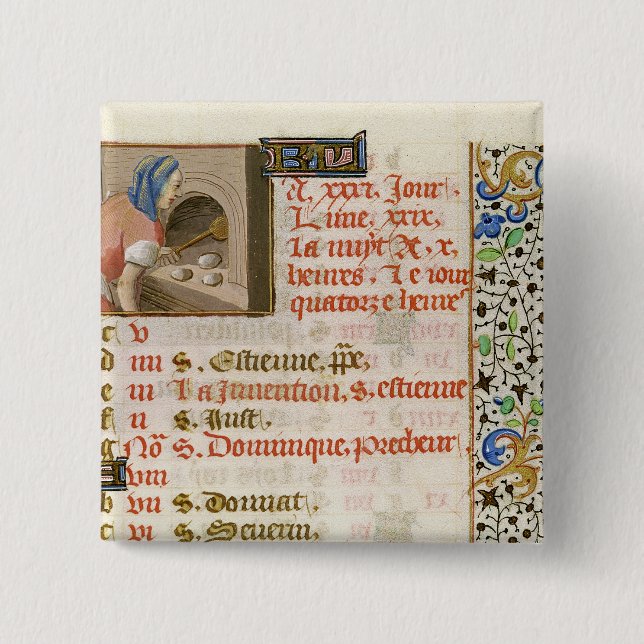 A. xxxi. Jour.
Lune. xxix.
La nuyt A. x.
heures. Le iour
quatorze heures
c v
d iiii s. Estienne, ppe,
e iii La Invention, s. estienne
f ii s. Just,
g No s. Dominique, precheur,
viii
b vii s. Donnat,
c vi s. Severin,